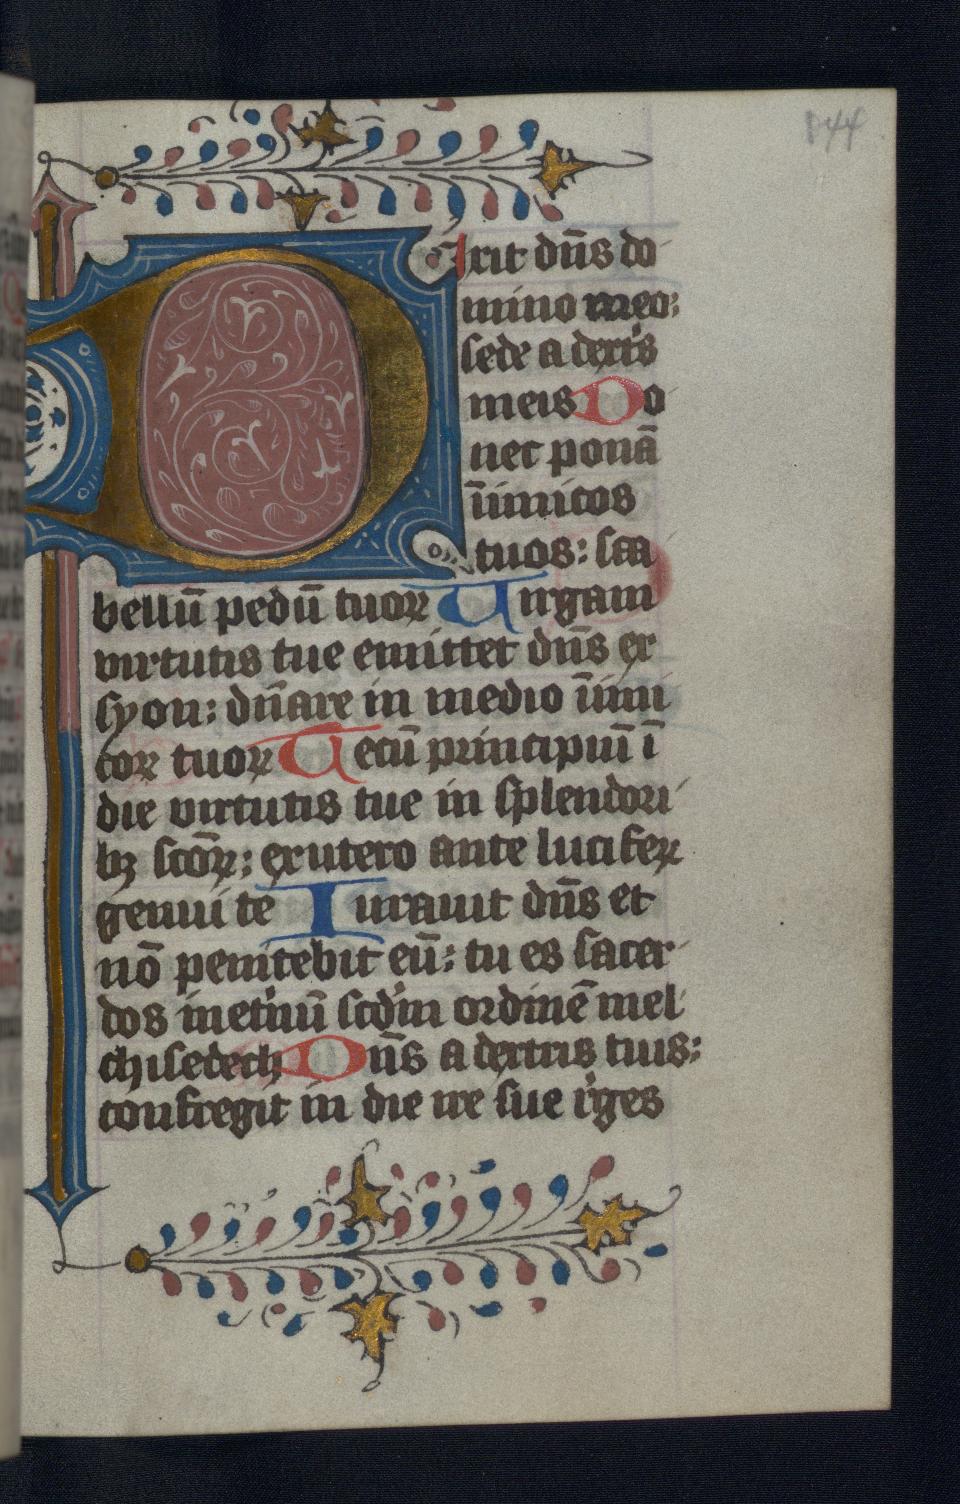 144
Dixit dn̄s do
mino meo:
sede a dextris
meis Do
nec ponā
īimicos
tuos: sca
bellū pedū tuoꝝ Uirgam
virtutis tue emittet dn̄s ex
syon: dn̄are in medio īimi
coꝝ tuoꝝ Tecū principiū ī
die virtutis tue in splendori
bꝫ scōꝝ: ex utero ante luciferꝝ
genui te Iurauit dn̄s et
nō penitebit eū: tu es sacer
dos inet'nū scd'm ordinē mel
chisedech Dn̄s a dextris tuis:
confregit in die ire sue r'ges